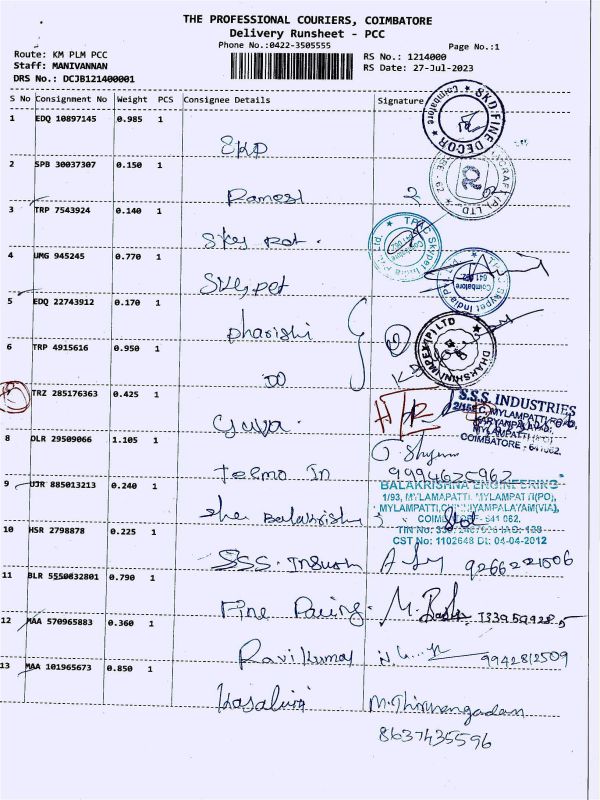 THE PROFESSIONAL COURIERS, COIMBATORE
Delivery Runsheet - PCC
Phone No.:0422-3505555
Page No.:1
Route: KM PLM PCC
RS No.: 1214000
Staff: MANIVANNAN
RS Date: 27-Jul-2023
DRS No.: DCJB121400001
S No Consignment No Weight PCS Consignee Details Signature
1 EDQ 10897145 0.985 1
SKD FINE DECOR
Coimbatore
SKD
2 SPB 30037307 0.150 1
Ramesh
3 TRP 7543924 0.140 1
Sky Pet.
TPAC Skypet India Pvt. Ltd.
4 UMG 945245 0.770 1
Skypet
Coimbatore
641 062
5 EDQ 22743912 0.170 1
Dharishi
DHAKSHIN IMPEX (P) LTD
6 TRP 4915616 0.950 1
DO
7 TRZ 285176363 0.425 1
S.S.S. INDUSTRIES
MYLAMPATTI (PO)
COIMBATORE - 641 062.
8 DLR 29509066 1.105 1
G. Shyam
Tesmo In
9994625962
9 UJR 885013213 0.240 1
BALAKRISHNA ENGINEERING
1/93, MYLAMAPATTI, MYLAMPATTI(PO),
MYLAMPATTI, CHINNIYAMPALAYAM(VIA),
COIMBATORE - 641 062,
CST No: 1102648 Dt: 04-04-2012
Shri Balakrishn
10 HSR 2798878 0.225 1
SSS. Industri
9266221006
11 BLR 5550832801 0.790 1
Fine Paring.
12 MAA 570965883 0.360 1
Ravikumar
9942812509
13 MAA 101965673 0.850 1
M. Thirunengadam
8637435596